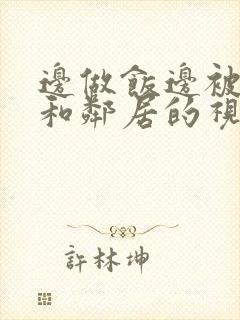 邊做飯邊被
和鄰居的視
許林坤